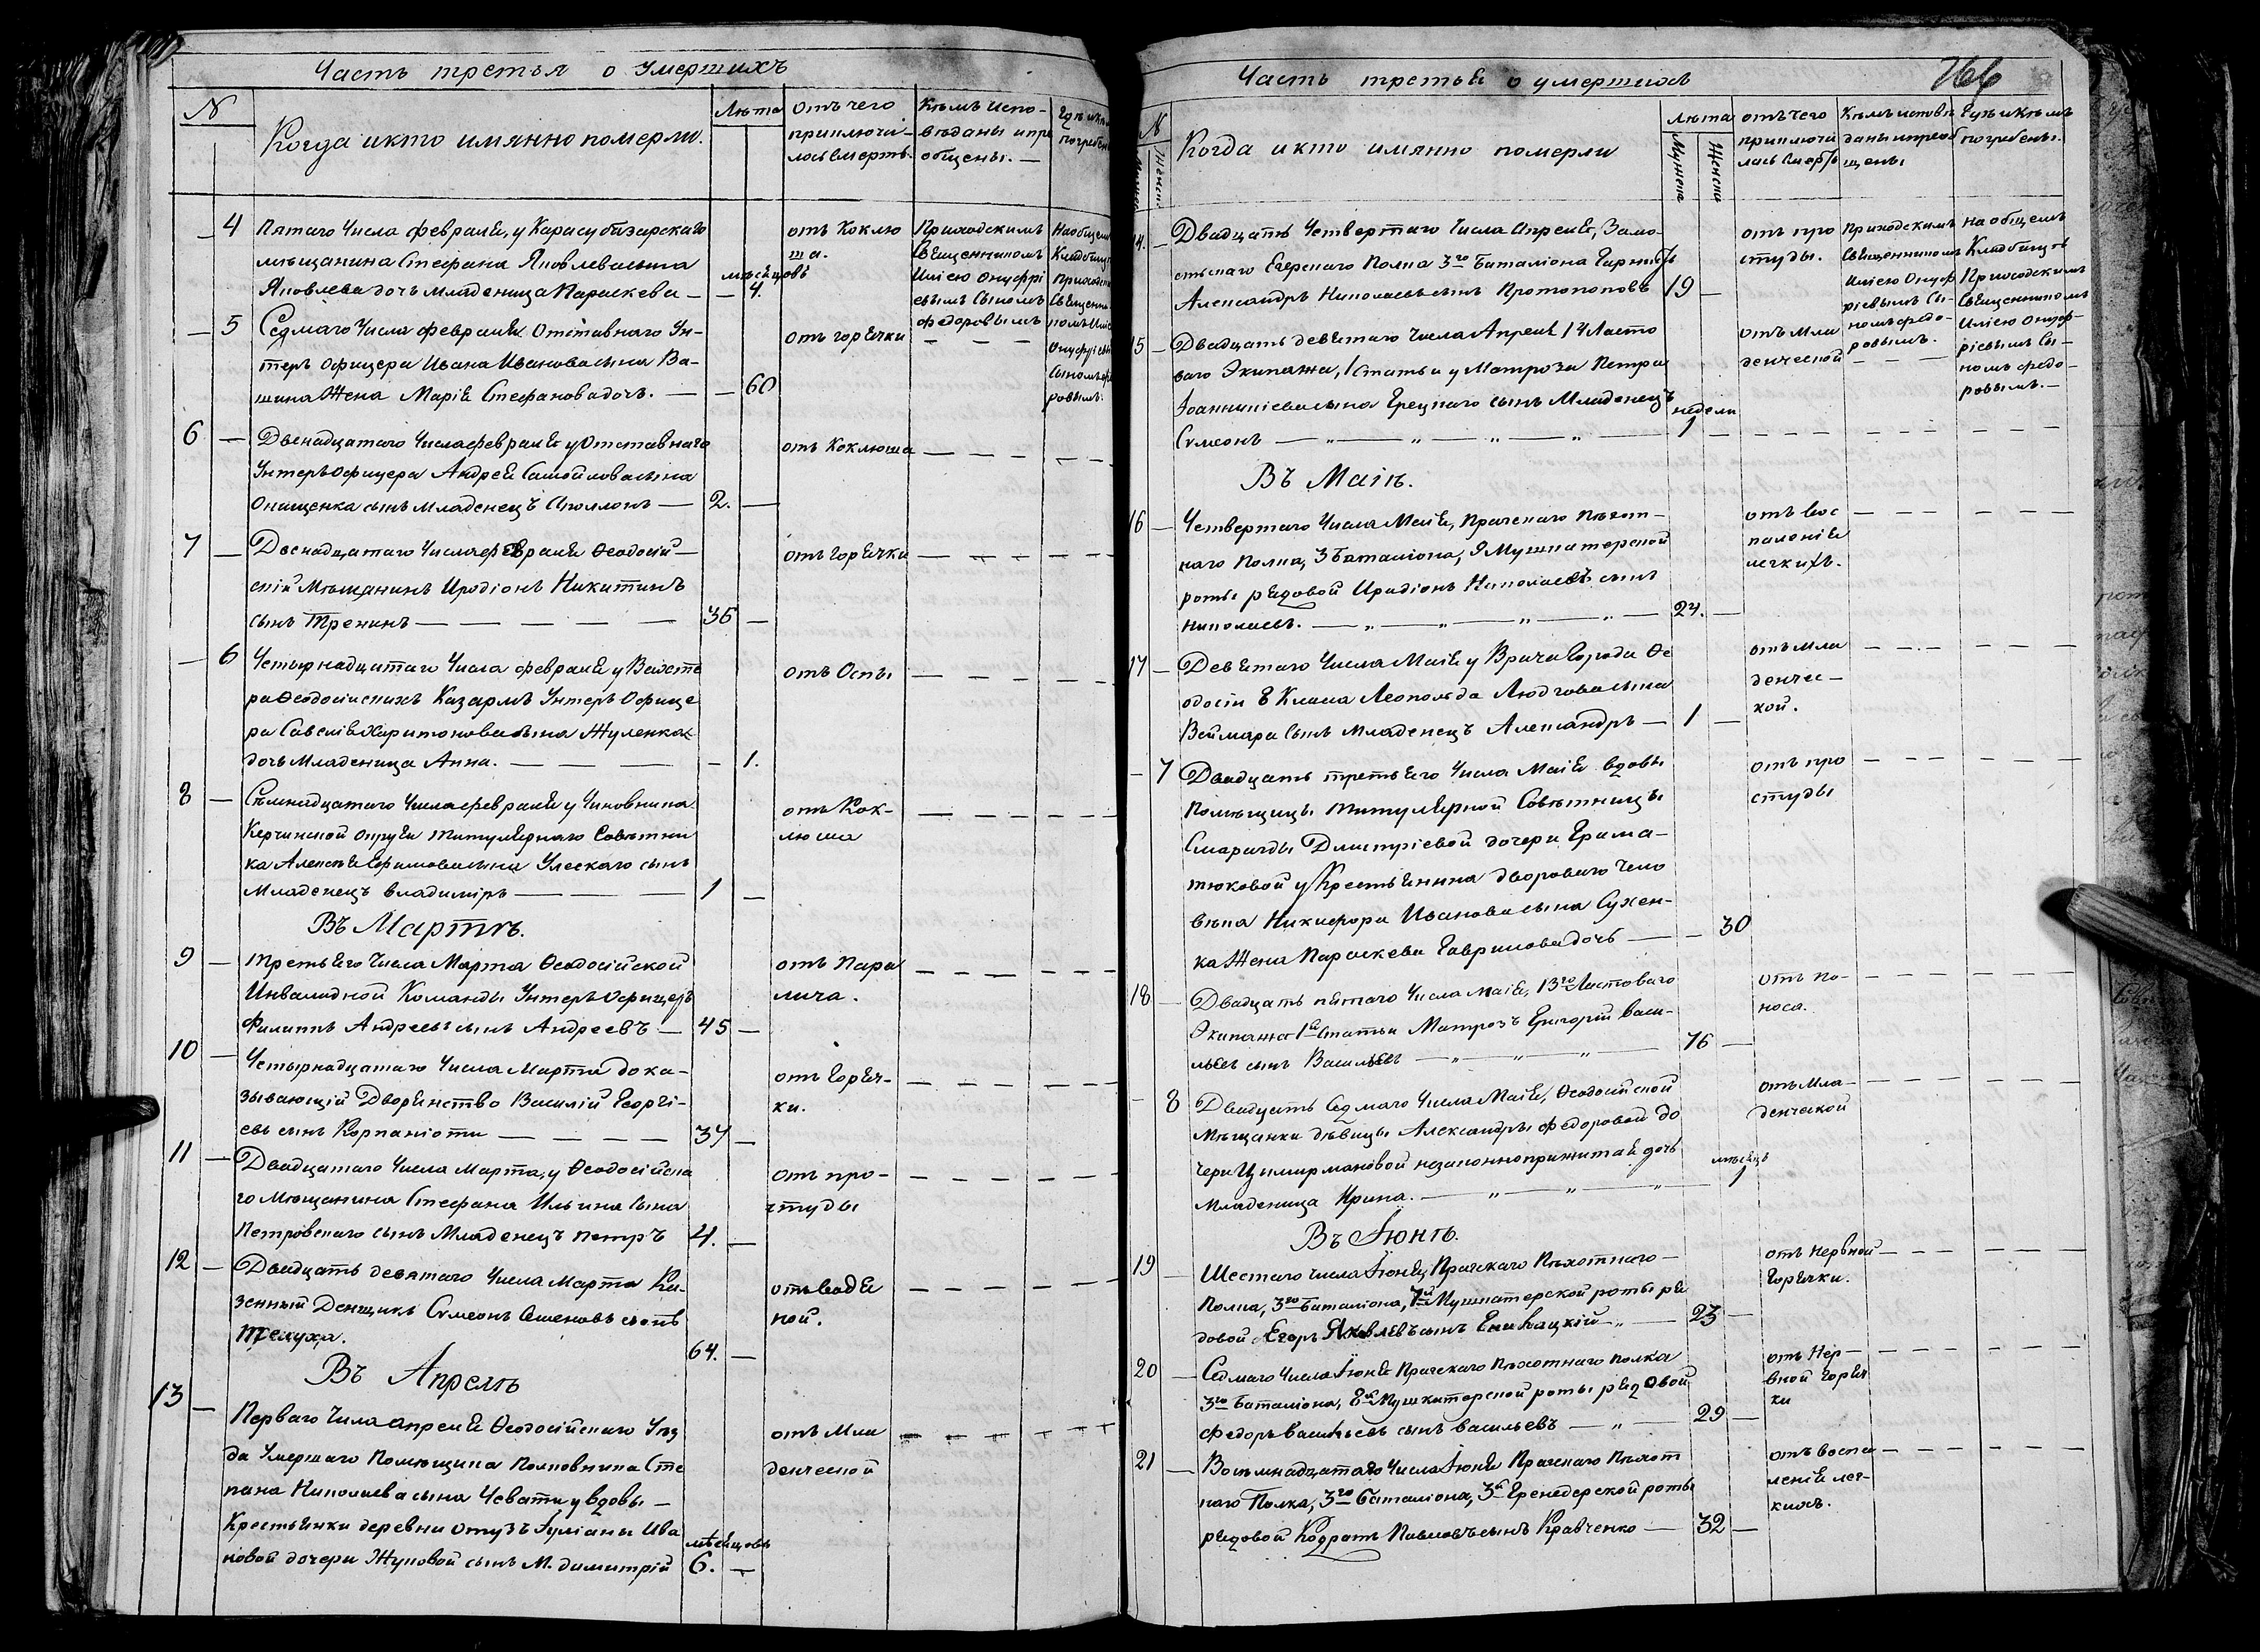 Часть третья о умершихъ
N
Когда и кто имянно померли.
Лѣта
Отъ чего приключилась смерть.
Кѣмъ исповѣданы и пріобщены. —
Гдѣ и кѣмъ погребены
4 Пятаго Числа февраля, у Карасубазарскаго
мѣщанина Стефана Яковлева сына
Яковлева дочь младеница Параскева — мѣсяцовъ — 4.
отъ Коклюша.
Приходскимъ
Священникомъ
Иліею Онуфрі
евымъ Сыномъ
Федоровымъ
На общемъ
Кладбищѣ
— 5 Седмаго Числа февраля Отставного Ун-
теръ Офицера Ивана Иванова сына Ва-
шина Жена Марія Стефанова дочь. — — 60
отъ горячки
6 — Двенадцатаго Числа февраля у Отставнаго
Унтеръ Офицера Андрея Самойлова сына
Онищенка сынъ младенецъ Аполлонъ — 2. —
отъ Коклюша
7 — Двенадцатаго Числа февраля Ѳеодосій-
скій Мѣщанинъ Иродіонъ Никитинъ
сынъ Тренинъ — — — — 36 —
отъ Горячки
— 6 Четырнадцатаго Числа февраля у Вахтѣ
ра Ѳеодосійскихъ Казармъ Унтеръ Офице
ра Савелія Харитонова сына Жуленка
дочь Младеница Анна. — — — — 1.
отъ Оспы
8 — Сѣмнадцатаго Числа февраля у Чиновника
Керчинской Округи Титулярнаго Совѣтни
ка Алексѣя Ефимова сына Улескаго сынъ
Младенецъ Владиміръ — — — 1 —
отъ Кок-
люша
Въ Мартѣ.
9 — Третьяго Числа Марта Ѳеодосійской
Инвалидной Команды Унтеръ Офицеръ
Филиппъ Андреевъ сынъ Андреевъ — 45 —
отъ Пара
лича.
10 — Четырнадцатаго Числа Марта дока-
зывающій Дворянство Василій Георгі-
евъ сынъ Корпаніоти — — — — 37 —
отъ Горяч-
ки.
11 — Двадцатаго Числа Марта, у Ѳеодосійска
го Мѣщанина Стефана Ильина Сына
Петровскаго сынъ Младенецъ Петръ 4. —
отъ про-
студы
12 — Двадцать девятаго Числа Марта Ка-
зенный Денщикъ Сѵмеонъ Семеновъ сынъ
64. —
отъ водя
ной.
Въ Апрелѣ
13 — Перваго Чила апреля Ѳеодосійскаго Уѣз
да Умершаго Помѣщика Полковника Сте
пана Николаева сына Чевати у вдовы —
Крестьянки деревни Отузъ Іуліаны Ива
новой дочери Жуповой сынъ М. Димитрій мѣсяцовъ 6. —
отъ Мла
денческой
Часть третья о умершихъ
766
N
Мужеск
Женски
Когда и кто имянно померли
Лѣта
Мужеск
Женски
отъ чего
приключи
лась смерть
Кѣмъ исповѣ
даны и пріоб
щены
Гдѣ и Кѣмъ
погребены.
14. — Двадцать Четвертаго Числа Апреля, Замо-
стьскаго Егерскаго Полка 3го Баталіона Гарнистъ
Александръ Николаевъ сынъ Протопоповъ 19 —
отъ про
студы.
Приходскимъ
Священникомъ
Иліею Онуф
ріевымъ Сы-
номъ Федо-
ровымъ.
на общемъ
Кладбищѣ
Приходскимъ
Священникомъ
Иліею Онуф-
ріевымъ Сы-
номъ Федо-
ровымъ. —
15 — Двадцать девятаго Числа Апреля 14 Ласто
ваго Экипажа, 1 Статьи у Матроза Петра
Іоанникіева сына Грецкаго сынъ Младенецъ
Сѵмеонъ — недели 1 —
отъ Мла
денческой
Въ Маіѣ.
16 — Четвертаго Числа Маія, Пражскаго Пѣхот-
наго Полка, 3 Баталіона, 9 Мушкатерской
роты рядовой Ирадіонъ Николаевъ сынъ
Николаевъ. — 24. —
отъ вос
паленія
легкихъ.
17 — Девятаго Числа Маія у Врача Города Ѳе
одосіи 8 Класа Леопольда Людгова сына
Веймара Сынъ младенецъ Александръ — 1 —
отъ Мла
денчес-
кой.
— 7 Двадцать третьяго Числа Маія вдовы
Помѣщицы Титулярной Совѣтницы
Смарагды Дмитріевой дочери Грама-
тюковой у Крестьянина дворового Чело
вѣка Никифора Иванова сына Сухен-
ка Жена Параскева Гаврилова дочь — — 30
отъ про
студы
18 — Двадцать пятаго Числа Маія, 13го Ластоваго
Экипажа 1й Статьи Матрозъ Григорій Васи-
льевъ сынъ Васильевъ — 76 —
отъ по-
носа.
— 8 Двадцать Седмаго Числа Маія, Ѳеодосійской
Мѣщанки дѣвицы Александры Федоровой до
чери Цымирмановой незаконноприжитая дочь
Младеница Ирина. — мѣсяцъ 1
отъ Мла-
денческой
Въ Іюнѣ.
19 — Шестаго числа Іюня Пражскаго Пѣхотнаго —
Полка, 3го Баталіона, 7й Мушкатерской роты ря
довой Егоръ Яковлевъ сынъ — 23 —
отъ Нервной
Горячки.
20 — Седмаго Числа Іюня Пражскаго Пѣхотнаго полка
3го Баталіона, 8й Мушкатерской роты рядовой
Федоръ Васильевъ сынъ Васильевъ — 29 —
отъ Нер-
вной Горяч
ки
21 — Восьмнадцатаго Числа Іюня Пражскаго Пѣхот
наго Полка, 3го Баталіона, 3й Гренадерской роты
рядовой Кодратъ Павловъ сынъ Кравченко — 32 —
отъ воспа
ленія лег-
кихъ.